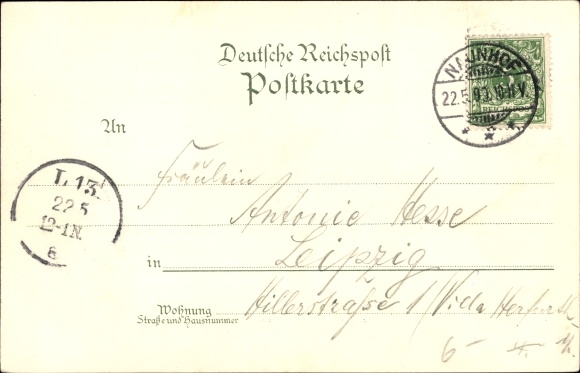 Deutsche Reichspost
Postkarte
NAUNHOF
22.5.
10-11 V.
An
Fräulein
Antonie Hesse
in Leipzig
Wohnung
Straße und Hausnummer
Hillerstraße 1 / Villa
L 13
22 5
12-1N.
6